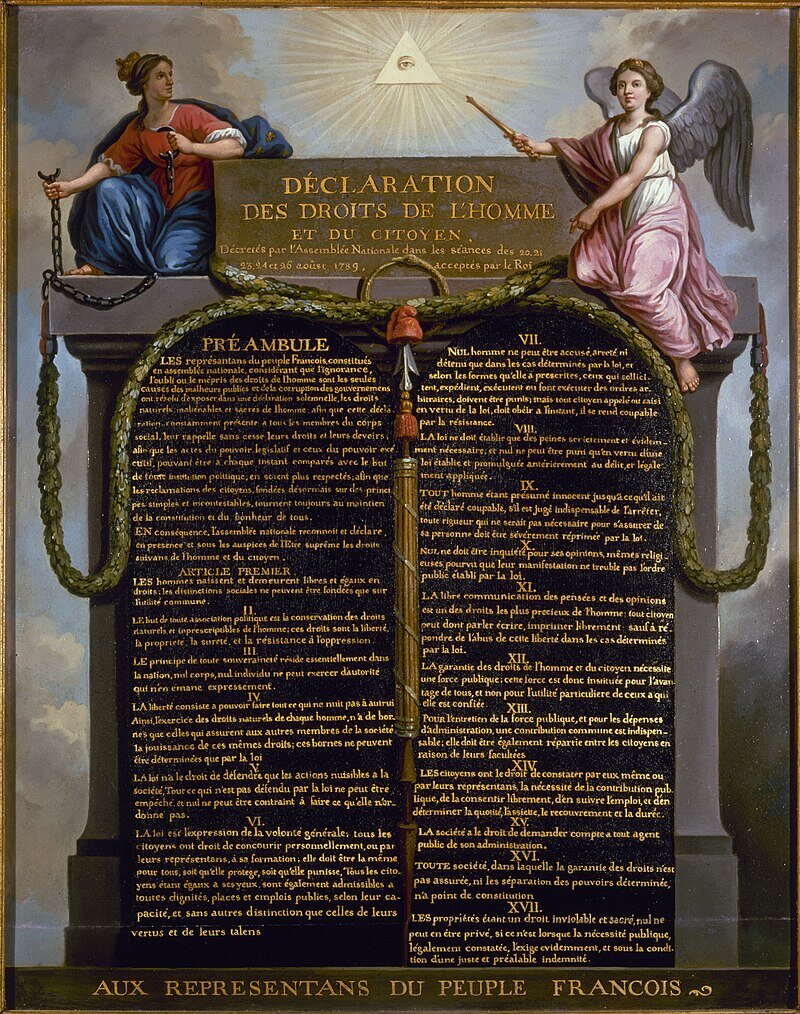 DÉCLARATION
DES DROITS DE L'HOMME
ET DU CITOYEN,
Décretés par l'Assemblée Nationale dans les séances des 20, 21
23, 24 et 26 août 1789, acceptés par le Roi
PRÉAMBULE
LES représantans du peuple Francois, constitués
en assemblée nationale, considérant que l'ignorance,
l'oubli ou le mépris des droits de l'homme sont les seules
causes des malheurs publics et de la corruption des gouvernemens
ont résolu d'exposer dans une déclaration solemnelle, les droits
naturels, inaliénables et sacrés de l'homme; afin que cette décla
ration, constamment présente a tous les membres du corps
social, leur rappelle sans cesse leurs droits et leurs devoirs;
afin que les actes du pouvoir legislatif et ceux du pouvoir exé
cutif, pouvant être a chaque instant comparés avec le but
de toute institution politique, en soient plus respectés; afin que
les reclamations des citoyens, fondées désormais sur des princi
pes simples et incontestables, tournent toujours au maintien
de la constitution et du bonheur de tous.
EN conséquence, l'assemblée nationale reconnoit et déclare
en presence et sous les auspices de l'Etre suprême les droits
suivans de l'homme et du citoyen.
ARTICLE PREMIER
LES hommes naissent et demeurent libres et égaux en
droits; les distinctions sociales ne peuvent être fondées que sur
l'utilité commune.
II.
LE but de toute association politique est la conservation des droits
naturels et inprescriptibles de l'homme; ces droits sont la liberté,
la proprieté, la sureté, et la résistance à l'oppression.
III.
LE principe de toute souveraineté réside essentiellement dans
la nation, nul corps, nul individu ne peut exercer d'autorité
qui n'en émane expressement.
IV.
LA liberté consiste a pouvoir faire tout ce qui ne nuit pas à autrui
Ainsi, l'exercice des droits naturels de chaque homme, n'a de bor-
nes que celles qui assurent aux autres membres de la société
la jouissance de ces mêmes droits; ces bornes ne peuvent
être déterminées que par la loi
V.
LA loi n'a le droit de défendre que les actions nuisibles a la
société, Tout ce qui n'est pas défendu par la loi ne peut être
empêché, et nul ne peut être contraint à faire ce qu'elle n'or-
donne pas.
VI.
LA loi est l'expression de la volonté générale; tous les
citoyens ont droit de concourir personnellement, ou par
leurs représentans, à sa formation; elle doit être la même
pour tous, soit qu'elle protege, soit qu'elle punisse, Tous les cito-
yens étant égaux a ses yeux, sont également admissibles a
toutes dignités, places et emplois publics, selon leur ca-
pacité, et sans autres distinction que celles de leurs
vertus et de leurs talens
VII.
NUL homme ne peut être accusé, arreté ni
détenu que dans les cas déterminés par la loi, et
selon les formes qu'elle à prescrites, ceux qui sollici-
tent, expédient, exécutent ou font exécuter des ordres ar-
bitraires, doivent être punis; mais tout citoyen appelé ou saisi
en vertu de la loi, doit obéir à l'instant, il se rend coupable
par la résistance.
VIII.
LA loi ne doit établir que des peines strictement et évidem-
ment nécessaire, et nul ne peut être puni qu'en vertu d'une
loi établie et promulguée antérierement au délit, et légale
ment appliquée.
IX.
TOUT homme étant présumé innocent jusqu'a ce qu'il ait
été déclaré coupable, s'il est jugé indispensable de l'arrêter,
toute rigueur qui ne serait pas nécessaire pour s'assurer de
sa personne doit être sévèrement réprimée par la loi.
X.
NUL ne doit être inquiété pour ses opinions, mêmes religi
euses pourvu que leur manifestation ne trouble pas l'ordre
public établi par la loi.
XI.
LA libre communication des pensées et des opinions
est un des droits les plus precieux de l'homme; tout citoyen
peut dont parler écrire, imprimer librement: sauf à ré
pondre de l'abus de cette liberté dans les cas déterminés
par la loi.
XII.
LA garantie des droits de l'homme et du citoyen nécessite
une force publique; cette force est donc instituée pour l'avan
tage de tous, et non pour l'utilité particuliere de ceux a qui
elle est confiée.
XIII.
POUR l'entretien de la force publique, et pour les dépenses
d'administration, une contribution commune est indispen-
sable; elle doit être également répartie entre les citoyens en
raison de leurs facultées
XIV.
LES citoyens ont le droit de constater par eux même ou
par leurs représentans, la nécessité de la contribution pub-
lique, de la consentir librement, d'en suivre l'emploi, et d'en
déterminer la quotité, l'assiette, le recouvrement et la durée.
XV.
LA société a le droit de demander compte a tout agent
public de son administration.
XVI.
TOUTE société, dans laquelle la garantie des droits n'est
pas assurée, ni les séparation des pouvoirs déterminée,
n'a point de constitution
XVII.
LES proprietés étant un droit inviolable et sacré, nul ne
peut en être privé, si ce n'est lorsque la nécessité publique,
légalement constatée, l'exige evidemment, et sous la condi-
tion d'une juste et préalable indemnité.
AUX REPRESENTANS DU PEUPLE FRANCOIS